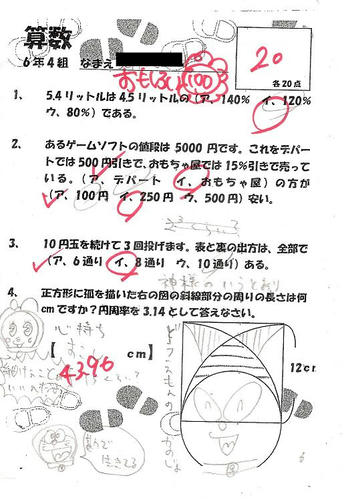 算数
6年4組 なまえ
20
各20点
おもしろい 100
1、 5.4リットルは4.5リットルの(ア、140% イ、120%
ウ、80%)である。
2、 あるゲームソフトの値段は5000円です。これをデパー
トでは500円引きで、おもちゃ屋では15%引きで売って
いる。(ア、デパート イ、おもちゃ屋)の方が
(ア、100円 イ、250円 ウ、500円)安い。
3、 10円玉を続けて3回投げます。表と裏の出方は、全部で
(ア、6通り イ、8通り ウ、10通り)ある。
神様のいうとおり
4、 正方形に孤を描いた右の図の斜線部分の周りの長さは何
cmですか?円周率を3.14として答えなさい。
心持ち
【 cm】
43.96
12cm
まるで
生きてる